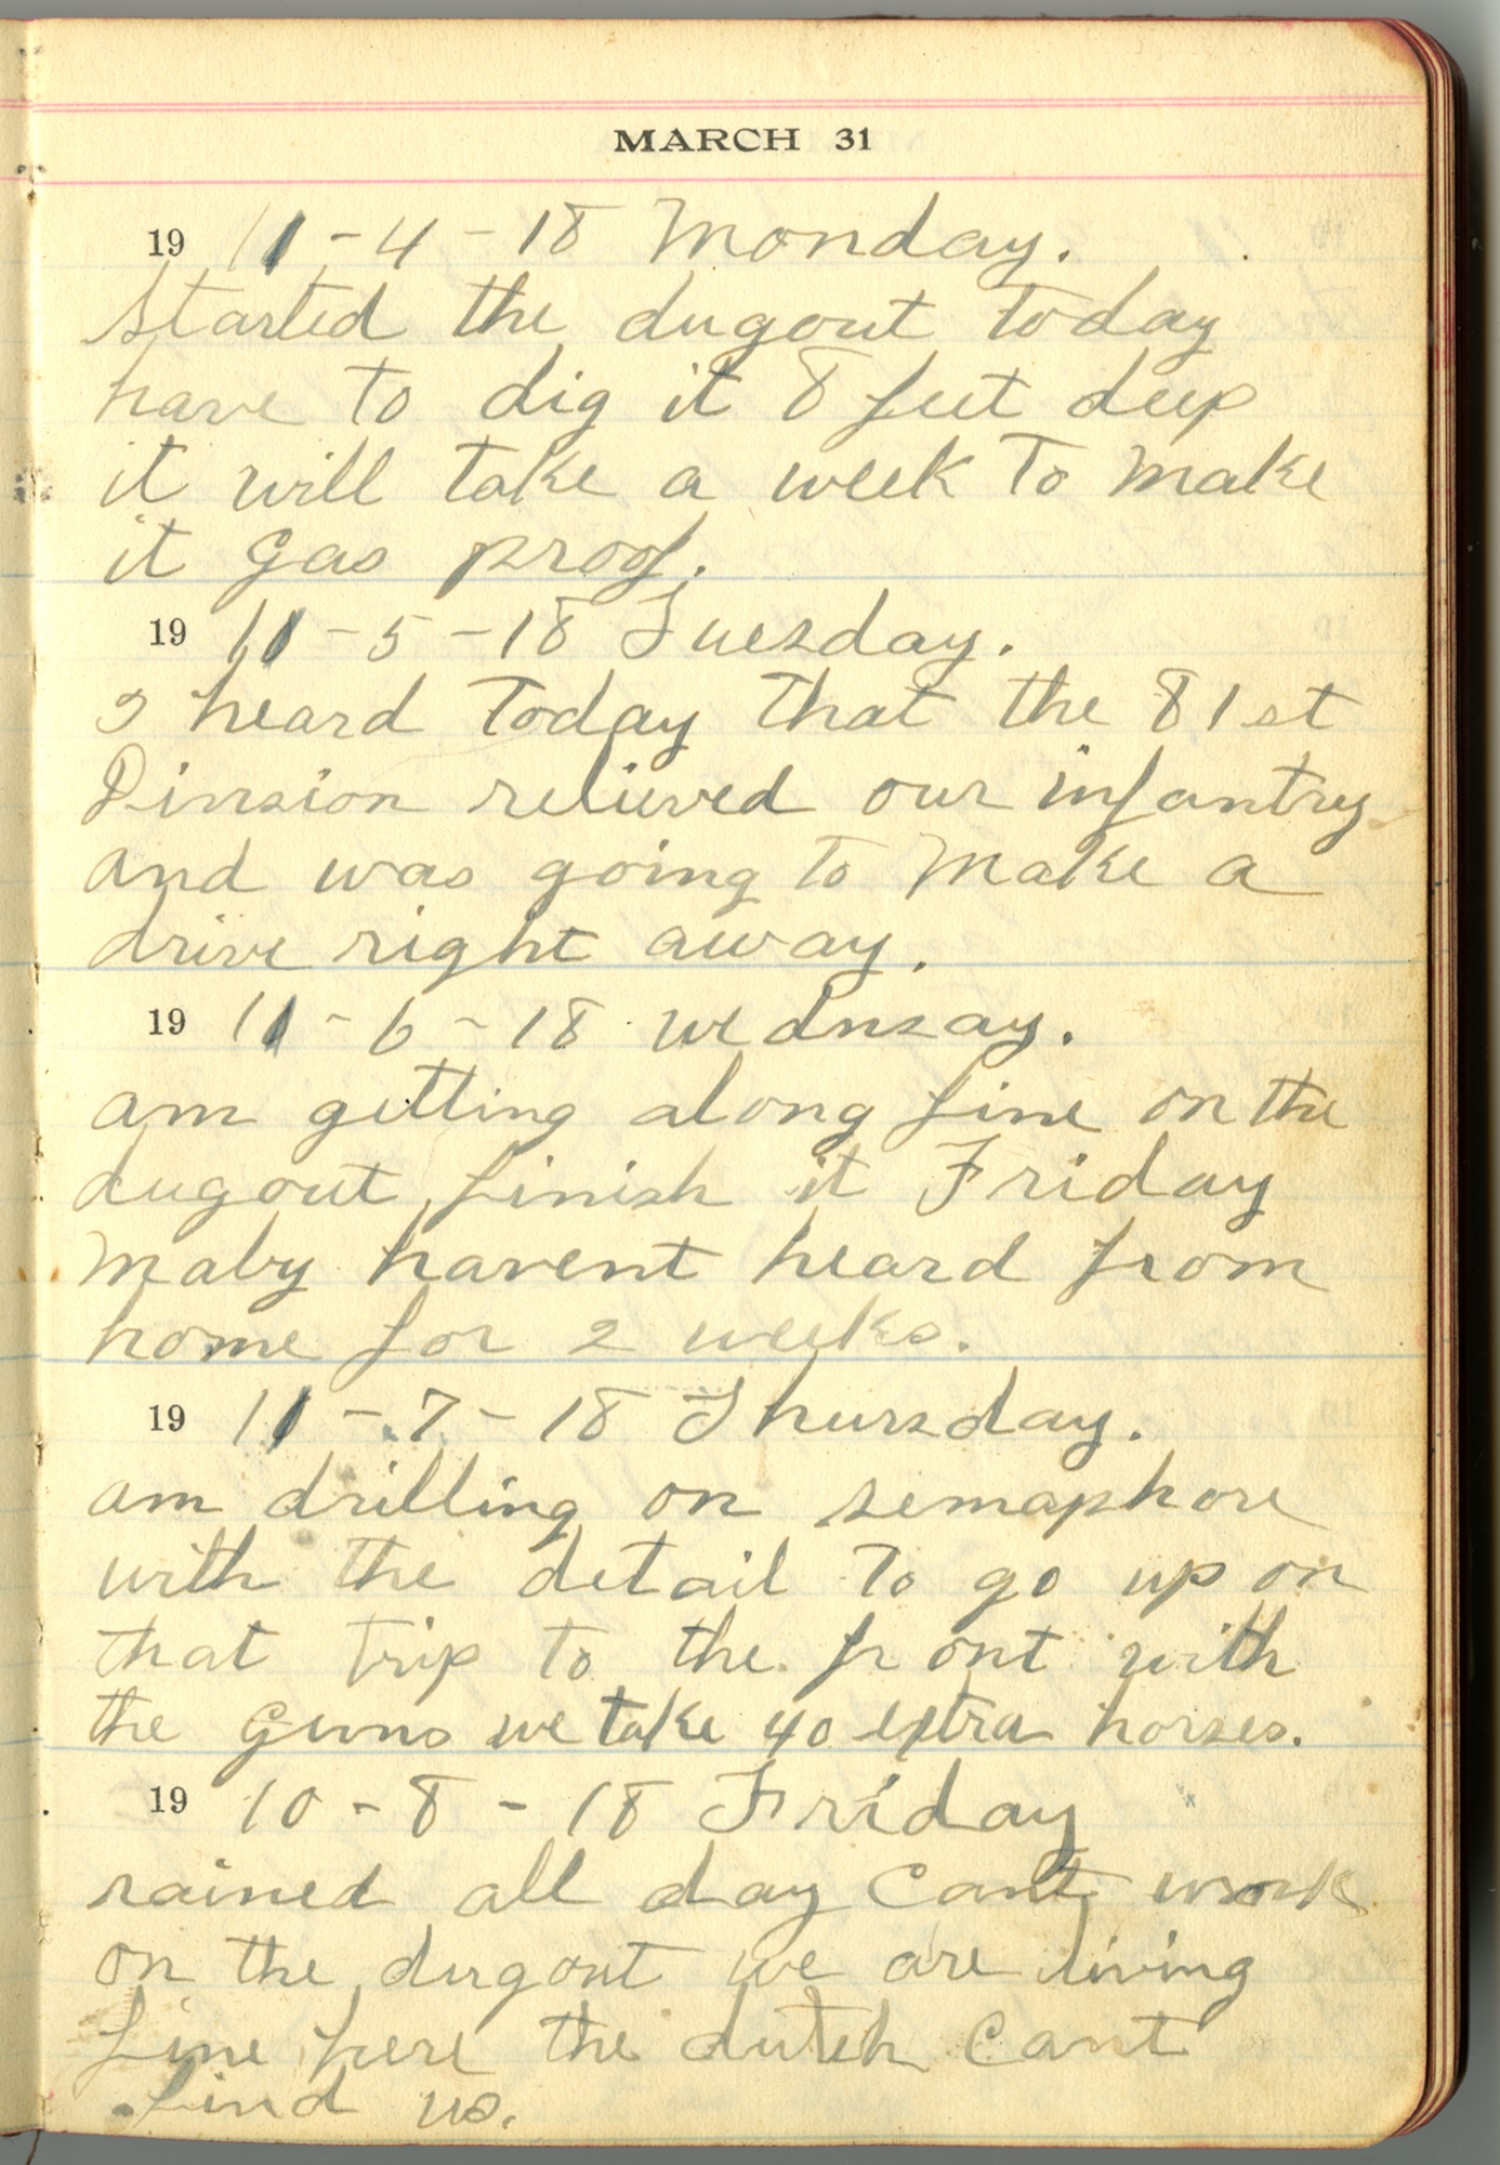 MARCH 31
19 11-4-18 Monday.
Started the dugout today
have to dig it 8 feet deep
it will take a week to make
it gas proof.
19 11-5-18 Tuesday.
I heard today that the 81st
Division relieved our infantry
and was going to make a
drive right away.
19 11-6-18 Wednsay.
am getting along fine on the
dugout finish it Friday
maby havent heard from
home for 2 weeks.
19 11-7-18 Thursday.
am drilling on semaphore
with the detail to go up on
that trip to the front with
the guns we take 40 extra horses.
19 10-8-18 Friday
rained all day cant work
on the dugout we are living
fine here the dutch cant
find us.